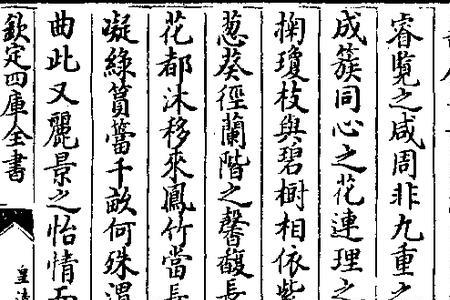 睿覽之咸周非九重之
成簇同心之花連理之
掬瓊枝與碧樹相依紫
葱葵徑蘭階之馨馥長
花都沐移來鳳竹當長
凝綠篔簹千畝何殊渭
曲此又麗景之怡情而
欽定四庫全書
皇清